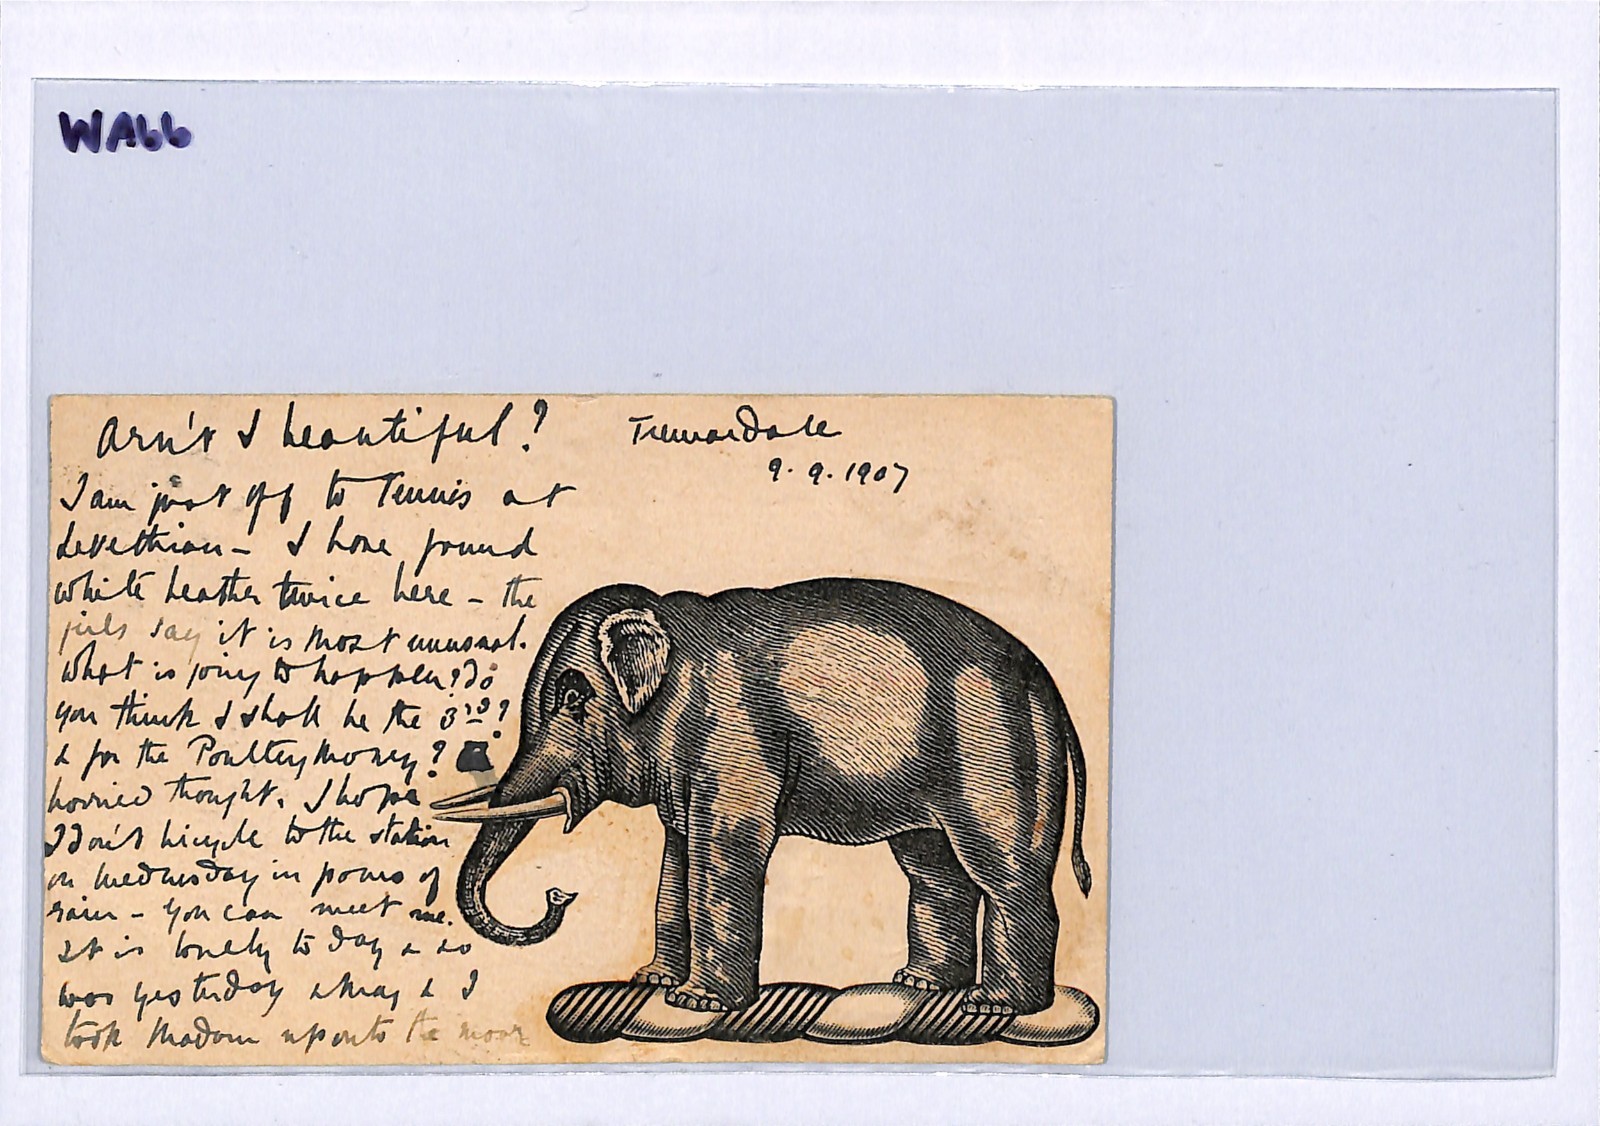 WA66
Arn't I beautiful?
Tremardale
9.9.1907
I am just off to Tennis at
Levethian – I have found
white heather twice here – the
girls say it is most unusual.
What is going to happen? Do
you think I shall be the 3rd?
& for the Poultry Money?
horried thought. I hope
I don't bicycle to the station
on Wednesday in pours of
rain – You can meet me.
It is lovely to day & so
was yesterday & May & I
took Madam up onto the moor